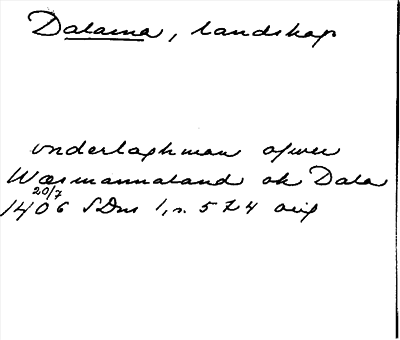 Dalarna, landskap
vnderlaghman ofwer
Wæsmannaland ok Dala
20/7
1406 SDns 1, n. 574 orig